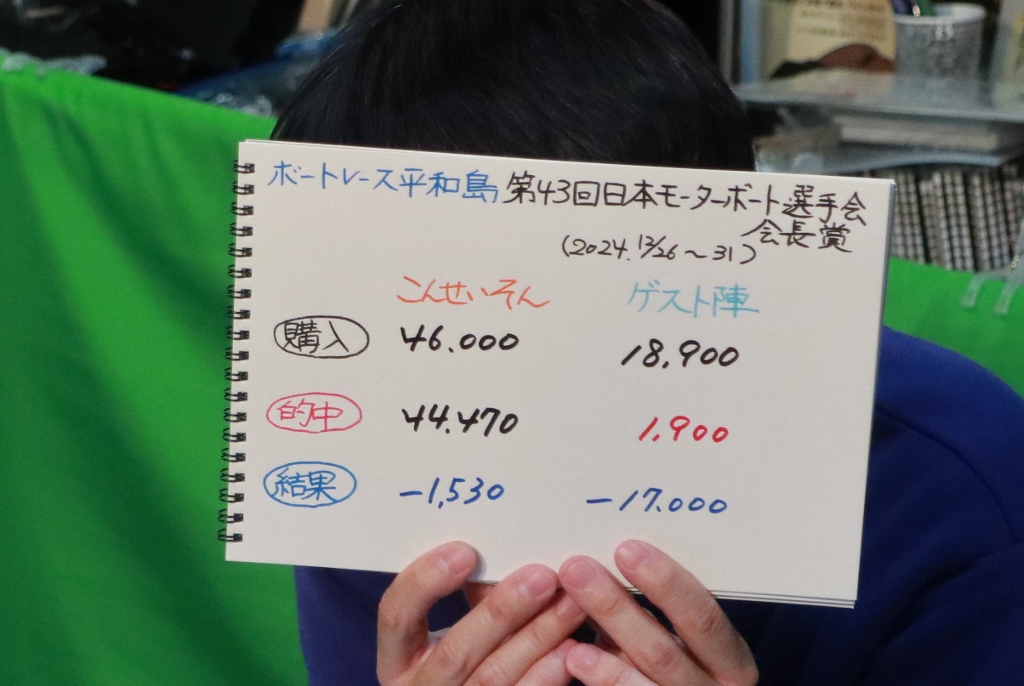 ボートレース平和島 第43回日本モーターボート選手会
会長賞
(2024.12/26~31)
こんせいそん ゲスト陣
購入 46.000 18,900
的中 44.470 1,900
結果 -1,530 -17.000